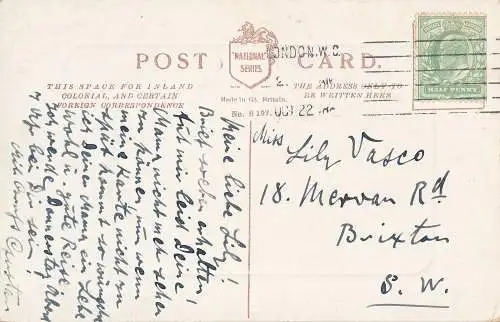 POST CARD.
"NATIONAL"
SERIES.
LONDON. W.C.
OCT 22
HALF PENNY
THIS SPACE FOR INLAND
COLONIAL, AND CERTAIN
FOREIGN CORRESPONDENCE
Made in Gt. Britain.
THE ADDRESS ONLY TO
BE WRITTEN HERE
Meine liebe Lily!
Brief soeben erhalten!
Tut mir leid Deine
Mama nicht mehr sehen
zu können, nun wenn
meine Karte nicht zu
spät kommt so wünsche
ihr Lebe
wohl u. gute Reise.
werde Donnerstag Abend
bei Dir sein!
Miss Lily Vasco
18. Mervan Rd
Brixton
S. W.